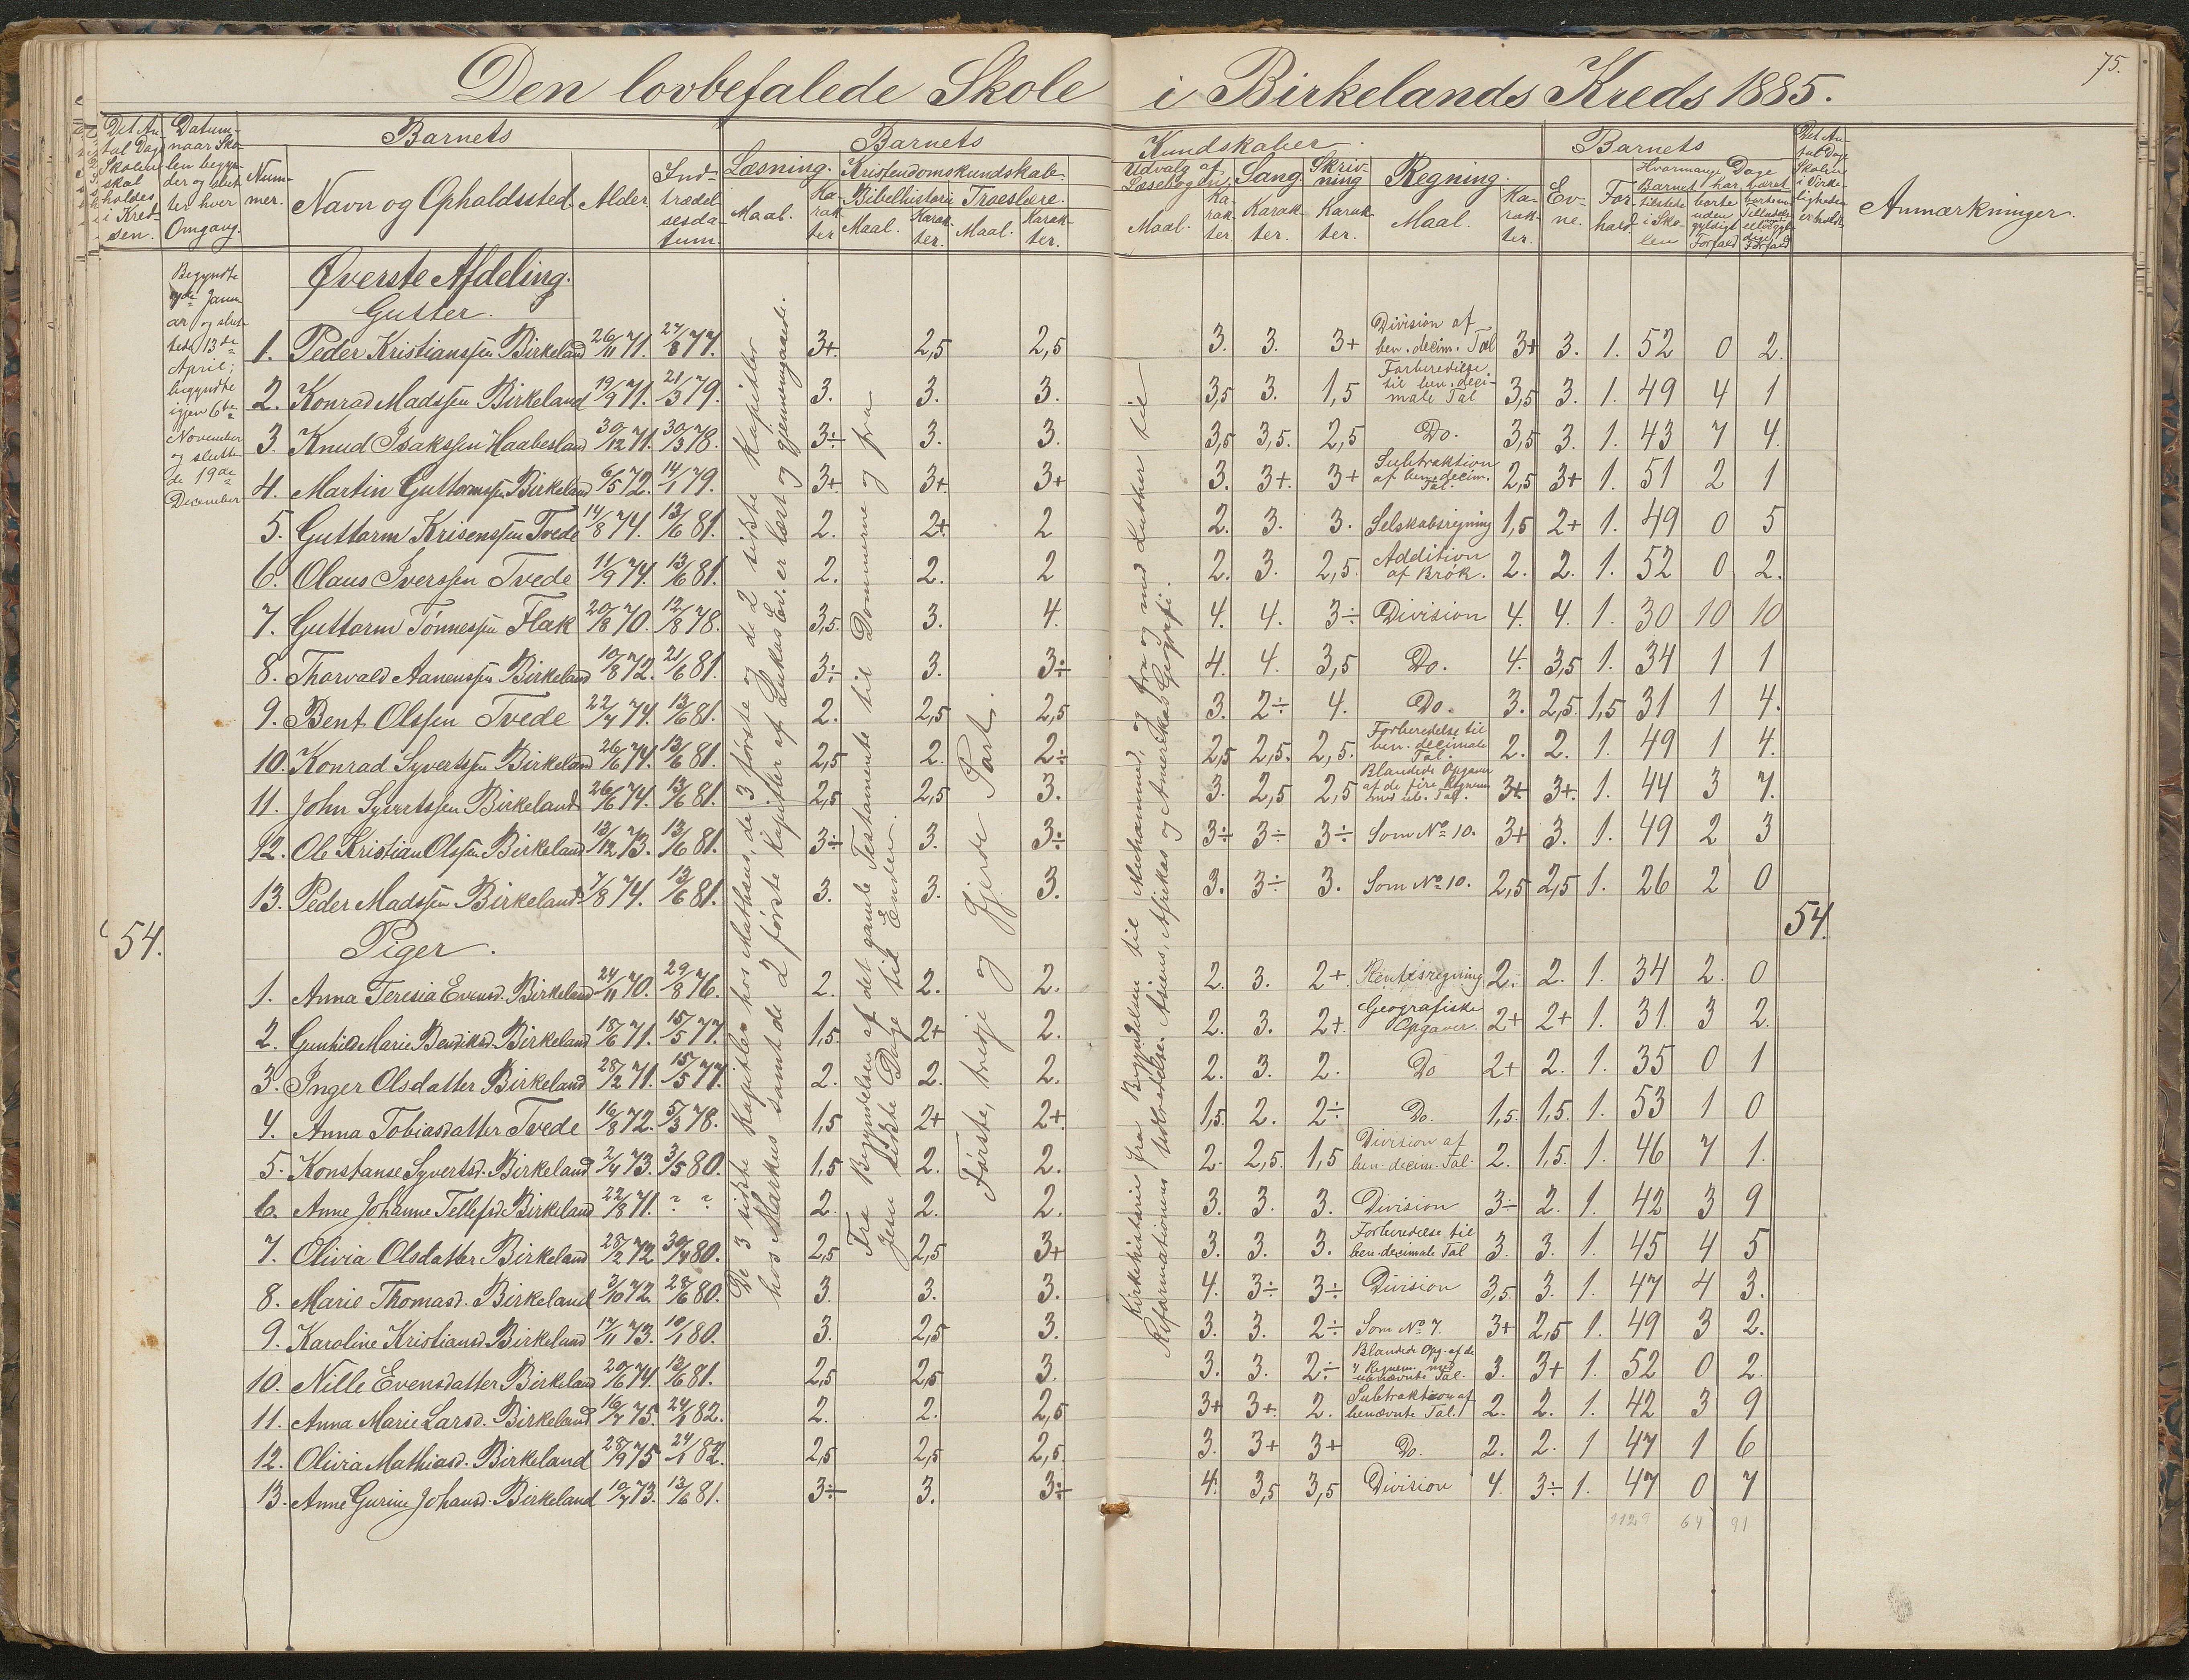 Den lovbefalede Skole i Birkelands Kreds 1885.
75.
Det Antal Dage Skolen skal holdes i Kredsen.
Datum, naar Skolen begynder og slutter hver Omgang.
Barnets
Nummer.
Navn og Opholdssted.
Alder.
Indtrædelsesdatum.
Barnets Kundskaber.
Læsning. Maal. Karakter
Kristendomskundskab.
Bibelhistorie Maal. Karakter.
Troeslære. Maal. Karakter.
Udvalg af Læsebogen. Maal. Karakter.
Sang. Karakter.
Skrivning Karakter.
Regning. Maal. Karakter.
Barnets
Evne.
Forhold.
Hvormange Dage Barnet har
tilstede i Skolen
borte uden gyldigt Forfald
Det Antal Dage Skolen i Virkeligheden er holdt
Anmærkninger.
Begyndte
Januar og sluttede 13de
April;
begyndte
igjen 6te
November
og sluttede 19de
December
Øverste Afdeling.
Gutter.
1. Peder Kristianssen Birkeland 26/11 71. 27/8 77. 3+. 2,5 2,5 3. 3. 3+ Division af ben. decim. Tal 3+ 3. 1. 52 0 2.
2. Konrad Madssen Birkeland 19/9 71. 21/3 79. 3. 3. 3. 3,5 3. 1,5 Forberedelse til ben. decimale Tal 3,5 3. 1. 49 4 1
3. Knud Isakssen Haabesland 30/12 71. 30/3 78. 3÷ 3. 3. 3,5 3,5. 2,5 Do. 3,5 3. 1. 43 7 4.
4. Martin Guttormssen Birkeland 6/5 72. 14/1 79. 3+. 3+. 3+ 3. 3+. 3+ Subtraktion af ben. decim. Tal. 2,5 3+ 1. 51 2 1
5. Guttorm Krisenssen Tvede 14/8 74. 13/6 81. 2. 2+. 2 2. 3. 3. Selskabsregning 1,5 2+ 1. 49 0 5
6. Olaus Iverssen Tvede 11/9 74. 13/6 81. 2. 2. 2 2. 3. 2,5. Addition af Brøk. 2. 2. 1. 52 0 2.
7. Guttorm Tønnessen Flak 20/8 70. 12/8 78. 3,5. 3. 4. 4. 4. 3÷ Division 4. 4. 1. 30 10 10
8. Thorvald Aanenssen Birkeland 10/8 72. 21/6 81. 3÷ 3. 3÷ 4. 4. 3,5 Do. 4. 3,5 1. 34 1 1
9. Bent Olssen Tvede 22/7 74. 13/6 81. 2. 2,5 2,5 3. 2÷ 4. Do. 3. 2,5. 1,5 31 1 4.
10. Konrad Syvertssen Birkeland 26/6 74. 13/6 81. 2,5 2. 2÷ 2,5 2,5. 2,5. Forberedelse til ben. decimale Tal. 2. 2. 1. 49 1 4.
11. John Syvertssen Birkeland 26/6 74. 13/6 81. 2,5 2,5 3. 3. 2,5 2,5 Blandede Opgaver af de fire Regnem. med ub. Tal. 3+. 3+. 1. 44 3 7.
12. Ole Kristian Olssen Birkeland 13/12 73. 13/6 81. 3÷ 3. 3÷ 3÷ 3÷ 3÷ Som No 10. 3+ 3. 1. 49 2 3
13. Peder Madssen Birkeland 7/8 74. 13/6 81. 3. 3. 3. 3. 3÷ 3. Som No 10. 2,5 2,5 1. 26 2 0
54.
54.
Piger.
1. Anna Teresia Evensd. Birkeland 24/11 70. 29/8 76. 2. 2. 2. 2. 3. 2+. Rentesregning 2. 2. 1. 34 2. 0
2. Gunhild Marie Bendiksd. Birkeland 18/6 71. 15/5 77. 1,5. 2+ 2. 2. 3. 2+. Geografiske Opgaver. 2+ 2+ 1. 31 3 2.
3. Inger Olsdatter Birkeland 28/2 71. 15/5 77. 2. 2. 2. 2. 3. 2. Do 2+ 2. 1. 35 0 1
4. Anna Tobiasdatter Tvede 16/8 72. 5/3 78. 1,5 2+ 2+. 1,5. 2. 2÷ Do. 1,5. 1,5. 1. 53 1 0
5. Konstanse Syvertsd. Birkeland 2/4 73. 3/5 80. 1,5 2. 2. 2. 2,5. 1,5 Division af ben. decim. Tal. 2. 1,5. 1. 46 7 1.
6. Anne Johanne Tellefsd. Birkeland 22/8 71. ? ? 2. 2. 2. 3. 3. 3. Division 3÷ 2. 1. 42 3 9
7. Olivia Olsdatter Birkeland 28/2 72 30/4 80. 2,5 2,5 3+ 3. 3. 3. Forberedelse til ben. decimale Tal 3. 3. 1. 45 4 5
8. Marie Thomasd. Birkeland 3/10 72. 28/6 80. 3. 3. 3. 4. 3÷ 3÷ Division 3,5. 3. 1. 47 4 3.
9. Karoline Kristiansd. Birkeland 17/11 73. 10/1 80. 3. 2,5 3. 3. 3. 2÷ Som No 7. 3+ 2,5 1. 49 3 2.
10. Nille Evensdatter Birkeland 20/6 74. 13/6 81. 2,5 2,5 3. 3. 3. 2÷ Blandede Opg. af de 4 Regnem. med ubenævnte Tal. 3. 3+ 1. 52 0 2.
11. Anna Marie Larsd. Birkeland 16/7 75. 24/1 82. 2. 2. 2,5 3+ 3+. 2. Subtraktion af benævnte Tal. 2. 2. 1. 42 3 9
12. Olivia Mathiasd. Birkeland 28/9 75 24/1 82. 2,5 2,5 2,5. 3. 3+ 3+ Do. 2. 2. 1 47 1 6
13. Anne Gurine Johansd. Birkeland 10/7 73. 13/6 81. 3÷ 3. 3÷ 4. 3,5 3,5 Division 4. 3÷ 1. 47 0 7
1129 64 91
De 3 sidste Kapitler hos Mathæus, de 3 første og de 2 sidste Kapitler
hos Markus samt de 2 første Kapitler af Lukas Ev. er læst og gjennemgaaede.
Fra Begyndelsen af det gamle Testamente til Dommerne og fra
Jesu sidste Dage til Enden.
Første, tredje og fjerde Part.
Kirkehistorie fra Begyndelsen til Muhammed, og fra og med Luther til
Reformationens Udbredelse. Asiens, Afrikas og Amerikas Geografi.